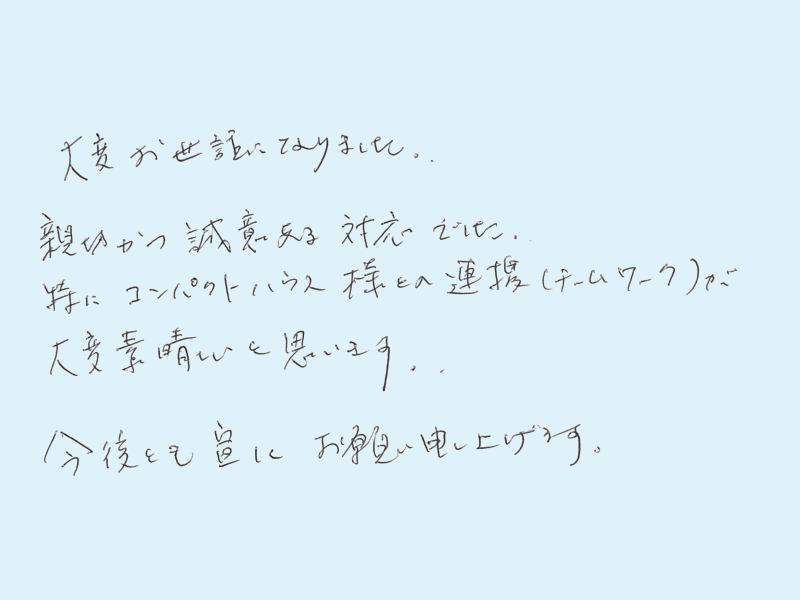 大変お世話になりました。
親切かつ誠意ある対応でした。
特にコンパクトハウス様との連携(チームワーク)が
大変素晴しいと思います。
今後とも宜にお願い申し上げます。